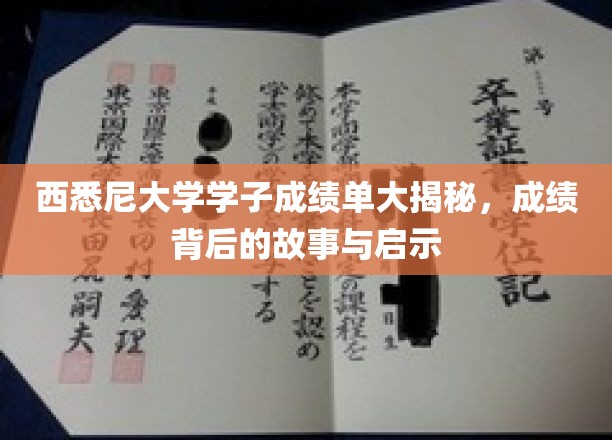 西悉尼大学学子成绩单大揭秘，成绩
背后的故事与启示
第 号
卒業証書 学位記
本学商学部 定の課程を
修めて本学 ことを認め
学士(商学)の学 する
平成
東京国際大学
東京国際大 長田尻嗣夫